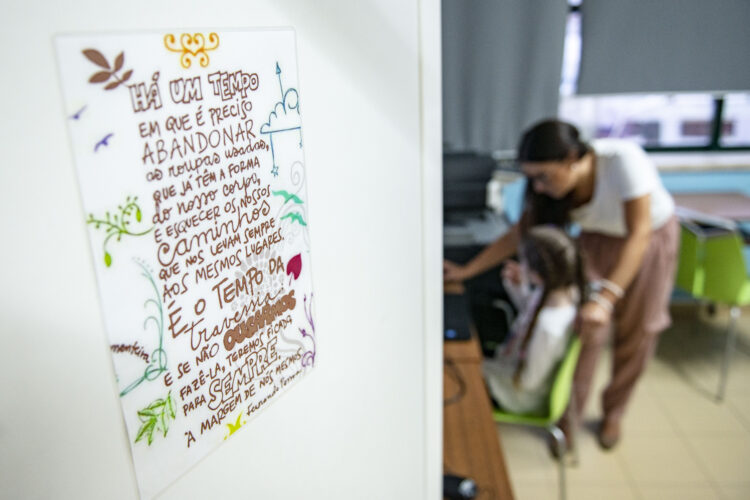 HÁ UM TEMPO
EM QUE É PRECISO
ABANDONAR
as roupas usadas,
QUE JÁ TÊM A FORMA
do nosso corpo,
E ESQUECER OS NOSSOS
Caminhos
QUE NOS LEVAM SEMPRE
AOS MESMOS LUGARES.
É O TEMPO DA
travessia
E SE NÃO OUSARMOS
FAZÊ-LA, TEREMOS FICADO,
PARA SEMPRE
À MARGEM DE NÓS MESMOS